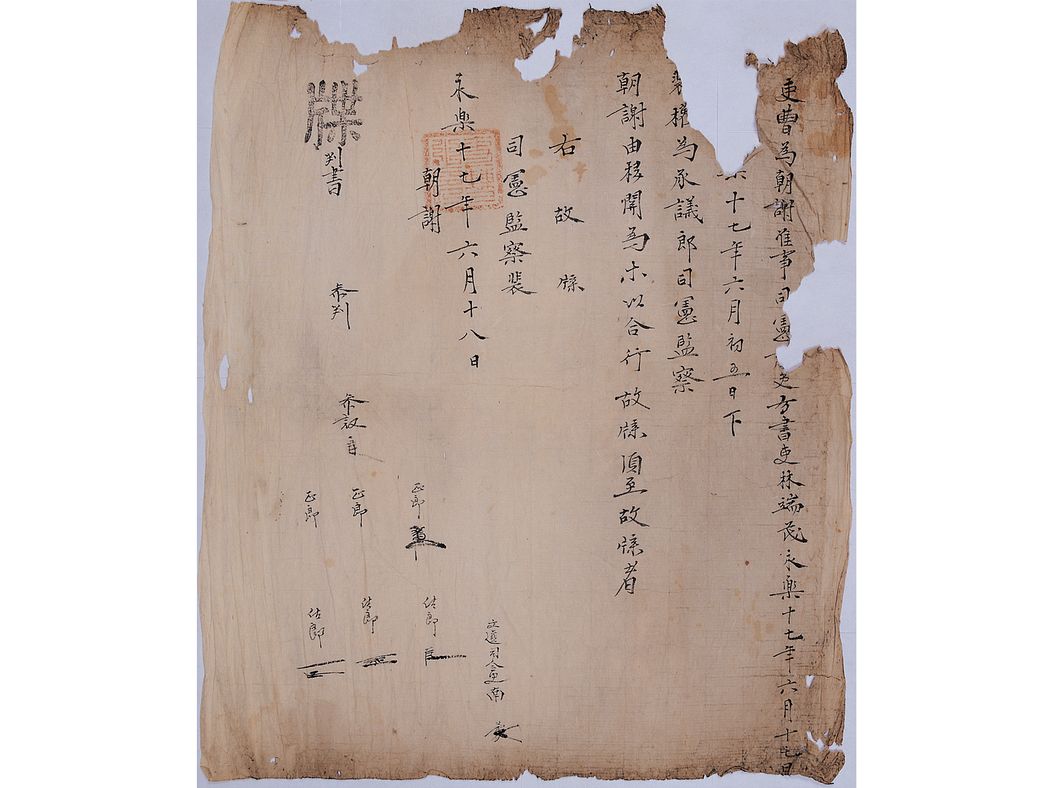 吏曹爲朝謝准事司憲 吏房書吏林端茂永樂十七年六月十七日
十七年六月初五日下
裴權爲承議郎司憲監察
朝謝由移關爲等以合行故牒須至故牒者
右故牒
司憲監察裴
永樂十七年六月十八日
朝謝
正郎
佐郎
牒
判書
參判
參議
正郎
正郎
佐郎
佐郎